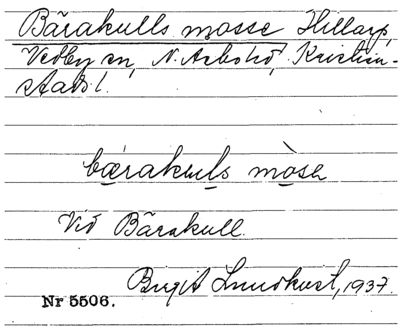 Bärakulls mosse Hillarp,
Vedby sn, N. Åsbo hd, Kristian-
stads l.
bærakuls mòsɛ
Vid Bärakull.
Birgit Lundkvist, 1937.
Nr 5506.